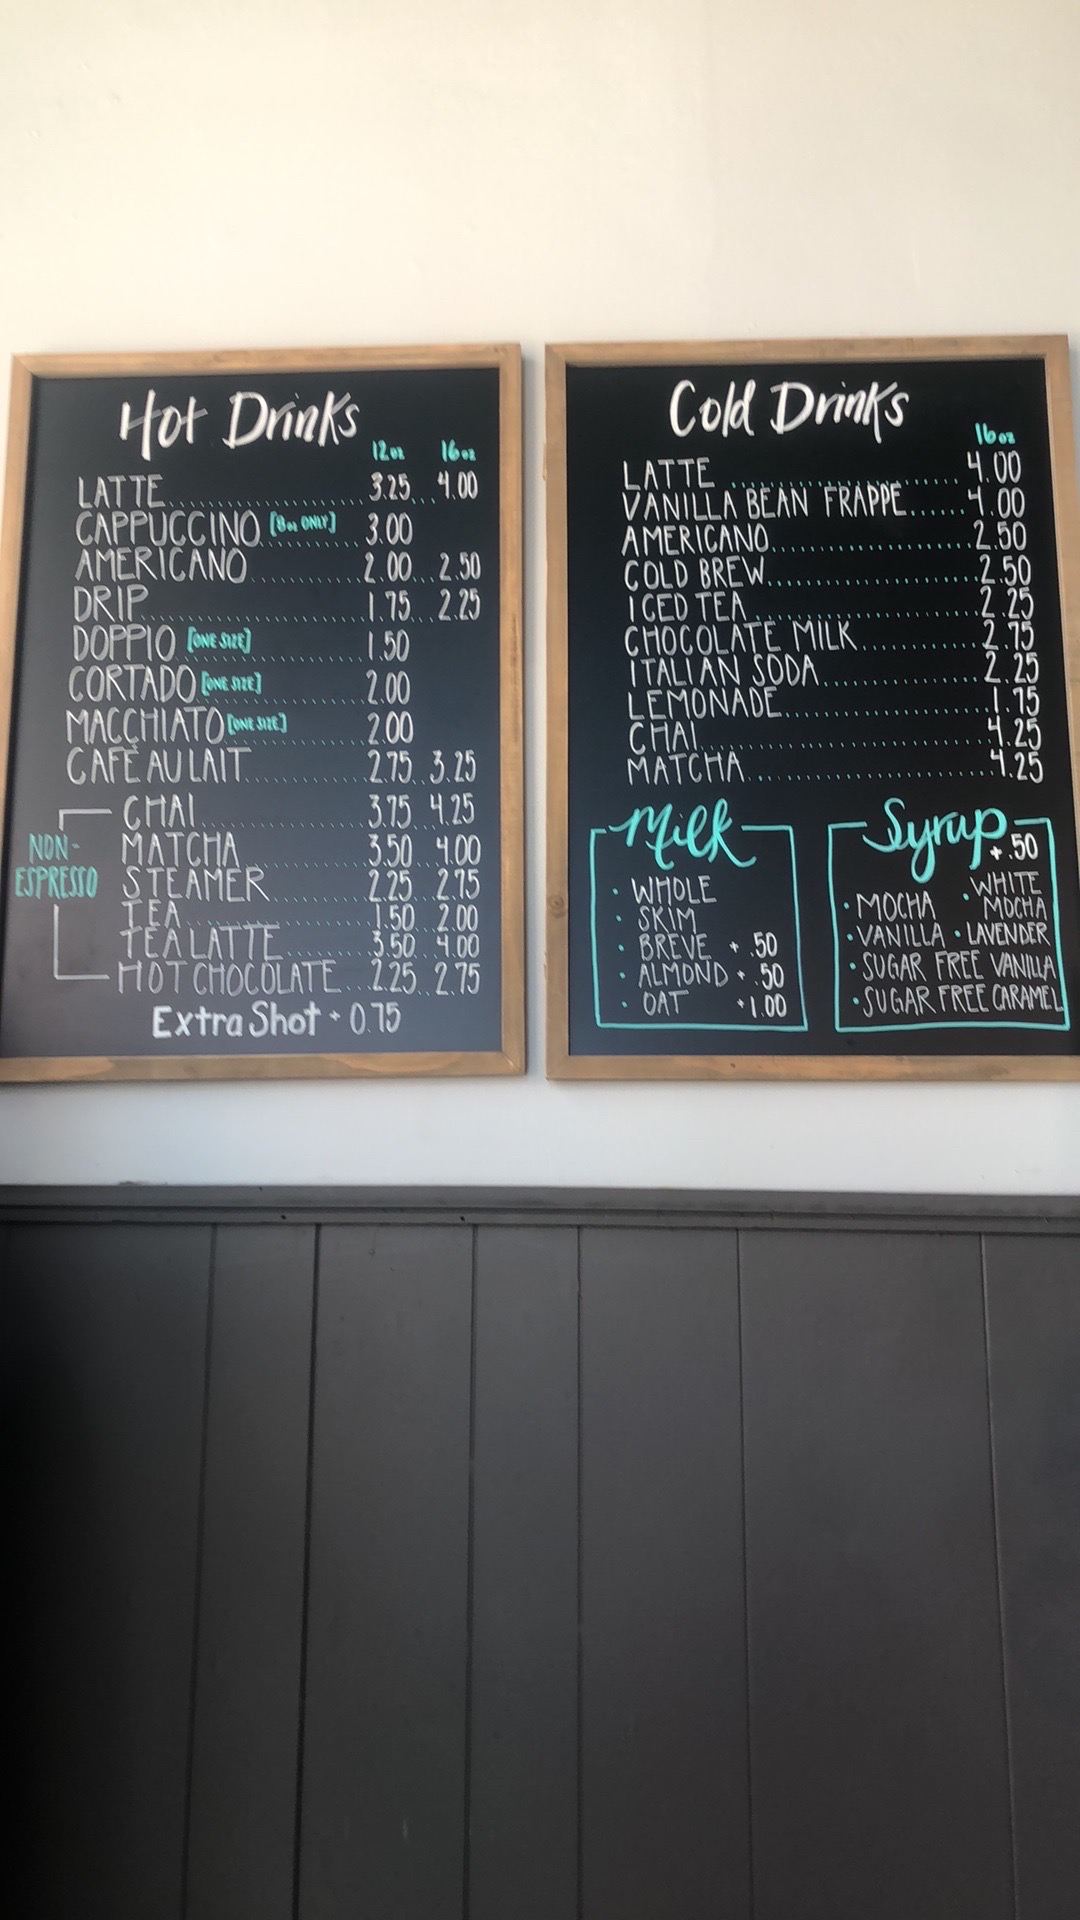 Hot Drinks
12oz 16oz
LATTE 3.25 4.00
CAPPUCCINO [8oz ONLY] 3.00
AMERICANO 2.00 2.50
DRIP 1.75 2.25
DOPPIO [ONE SIZE] 1.50
CORTADO [ONE SIZE] 2.00
MACCHIATO [ONE SIZE] 2.00
CAFÉ AU LAIT 2.75 3.25
NON-
ESPRESSO
CHAI 3.75 4.25
MATCHA 3.50 4.00
STEAMER 2.25 2.75
TEA 1.50 2.00
TEA LATTE 3.50 4.00
HOT CHOCOLATE 2.25 2.75
Extra Shot + 0.75
Cold Drinks
16oz
LATTE 4.00
VANILLA BEAN FRAPPE 4.00
AMERICANO 2.50
COLD BREW 2.50
ICED TEA 2.25
CHOCOLATE MILK 2.75
ITALIAN SODA 2.25
LEMONADE 1.75
CHAI 4.25
MATCHA 4.25
Milk
• WHOLE
• SKIM
• BREVE + .50
• ALMOND + .50
• OAT +1.00
Syrup
+.50
• MOCHA • WHITE MOCHA
• VANILLA • LAVENDER
• SUGAR FREE VANILLA
• SUGAR FREE CARAMEL